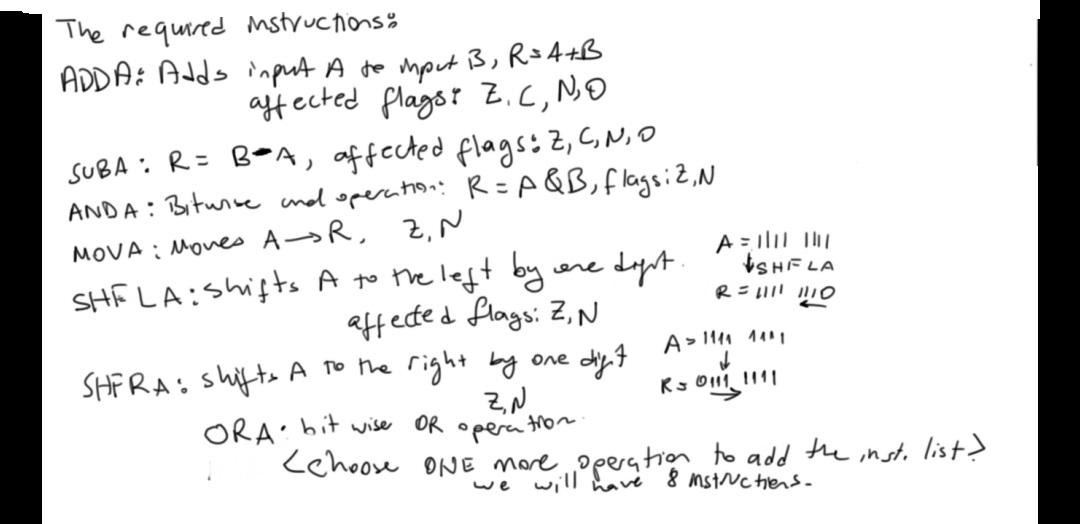 The required instructions:
ADDA: Adds input A to input B, R=A+B
affected flags: Z, C, N, O
SUBA: R = B-A, affected flags: Z, C, N, O
ANDA: Bitwise and operation: R = A & B, flags: Z, N
MOVA: Moves A → R, Z, N
SHFLA: shifts A to the left by one digit.
affected flags: Z, N
A = 1111 1111
↓ SHFLA
R = 1111 1110
SHFRA: shifts A to the right by one digit
Z, N
A = 1111 1111
↓
R = 0111 1111
ORA: bit wise OR operation.
<choose ONE more operation to add the inst. list>
we will have 8 instructions.